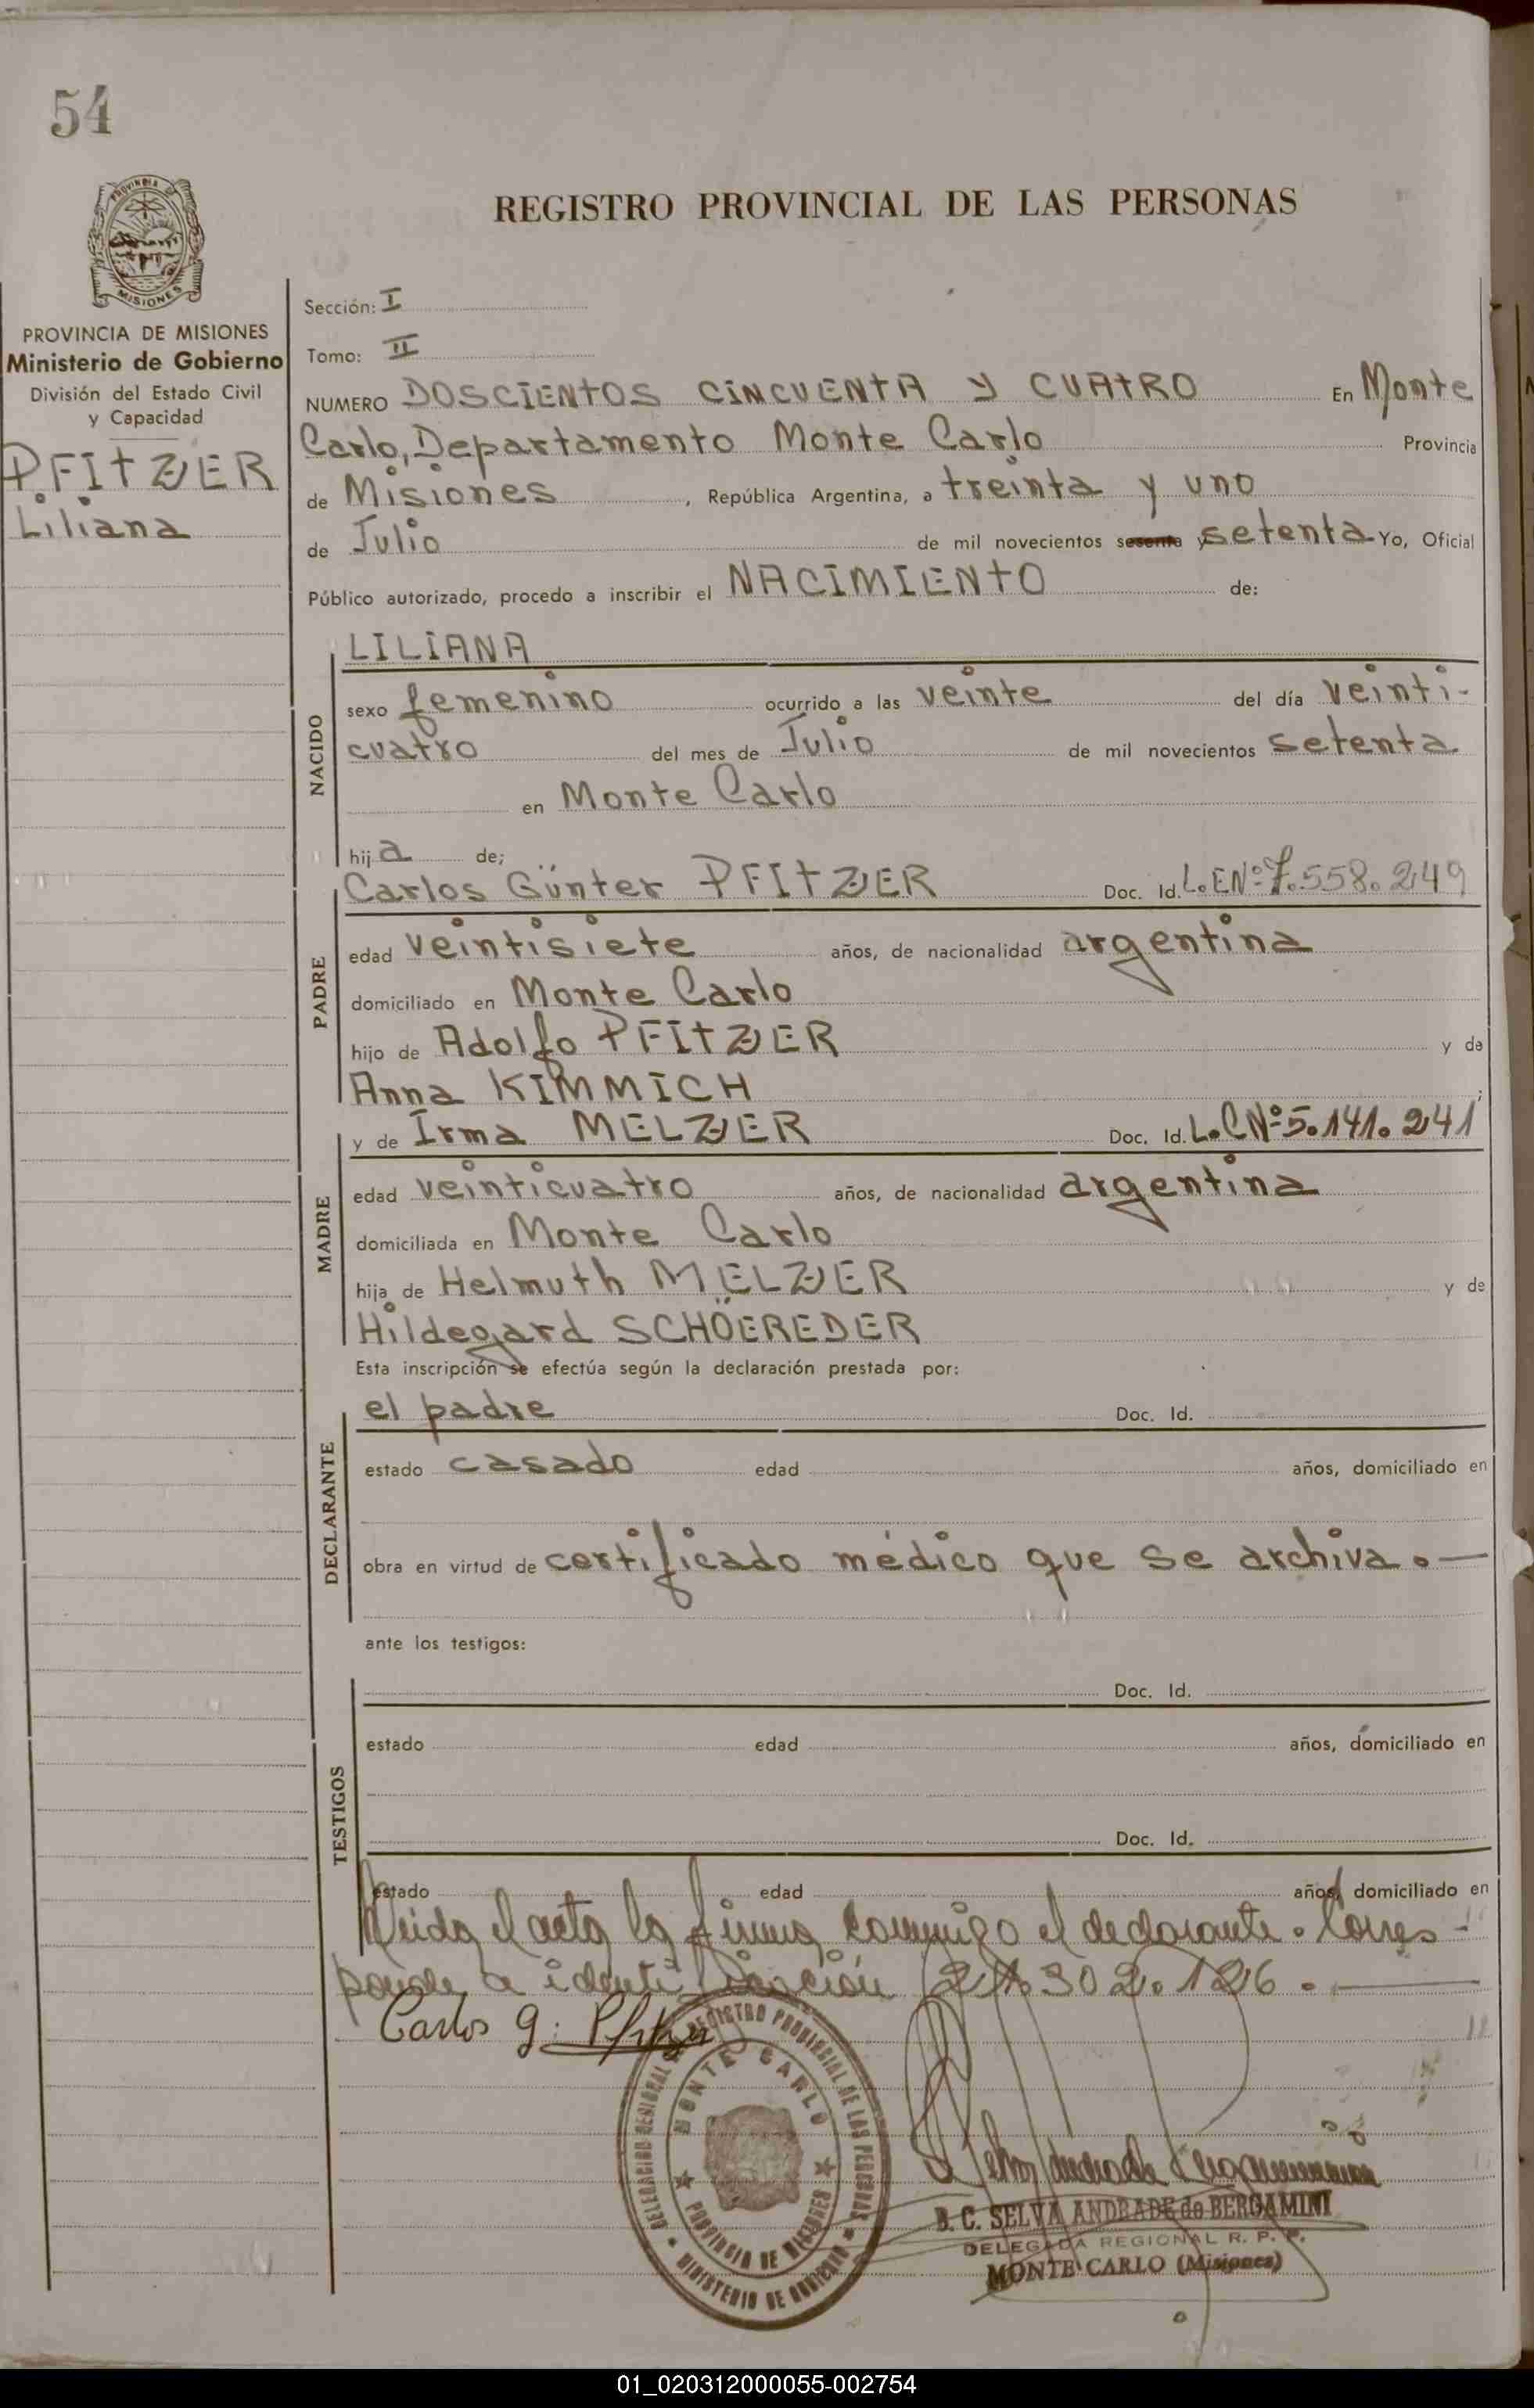 54
REGISTRO PROVINCIAL DE LAS PERSONAS
PROVINCIA DE MISIONES
Ministerio de Gobierno
División del Estado Civil
y Capacidad
PFITZER
Liliana
Sección: I
Tomo: II
NUMERO DOSCIENTOS CINCUENTA Y CUATRO En Monte
Carlo, Departamento Monte Carlo Provincia
de Misiones, República Argentina, a treinta y uno
de Julio de mil novecientos sesenta y setenta Yo, Oficial
Público autorizado, procedo a inscribir el NACIMIENTO de:
NACIDO
LILIANA
sexo femenino ocurrido a las veinte del día veinti-
cuatro del mes de Julio de mil novecientos setenta
en Monte Carlo
hija de;
PADRE
Carlos Günter PFITZER Doc. Id. L.E Nº 7.558.249
edad veintisiete años, de nacionalidad argentina
domiciliado en Monte Carlo
hijo de Adolfo PFITZER y de
Anna KIMMICH
MADRE
y de Irma MELZER Doc. Id. L.C Nº 5.141.241
edad veinticuatro años, de nacionalidad argentina
domiciliada en Monte Carlo
hija de Helmuth MELZER y de
Hildegard SCHÖEREDER
Esta inscripción se efectúa según la declaración prestada por:
DECLARANTE
el padre Doc. Id.
estado casado edad años, domiciliado en
obra en virtud de certificado médico que se archiva.—
ante los testigos:
TESTIGOS
Doc. Id.
estado edad años, domiciliado en
Doc. Id.
estado edad años, domiciliado en
Leida el acta la firma conmigo el declarante. Corres-
ponde a identificación 21.302.126.—
Carlos G. Pfitzer
DELEGACION REGIONAL REGISTRO PROVINCIAL DE LAS PERSONAS
MONTE CARLO
PROVINCIA DE MISIONES
MINISTERIO DE GOBIERNO
B. C. SELVA ANDRADE de BERGAMINI
DELEGADA REGIONAL R. P. P.
MONTE CARLO (Misiones)
01_020312000055-002754